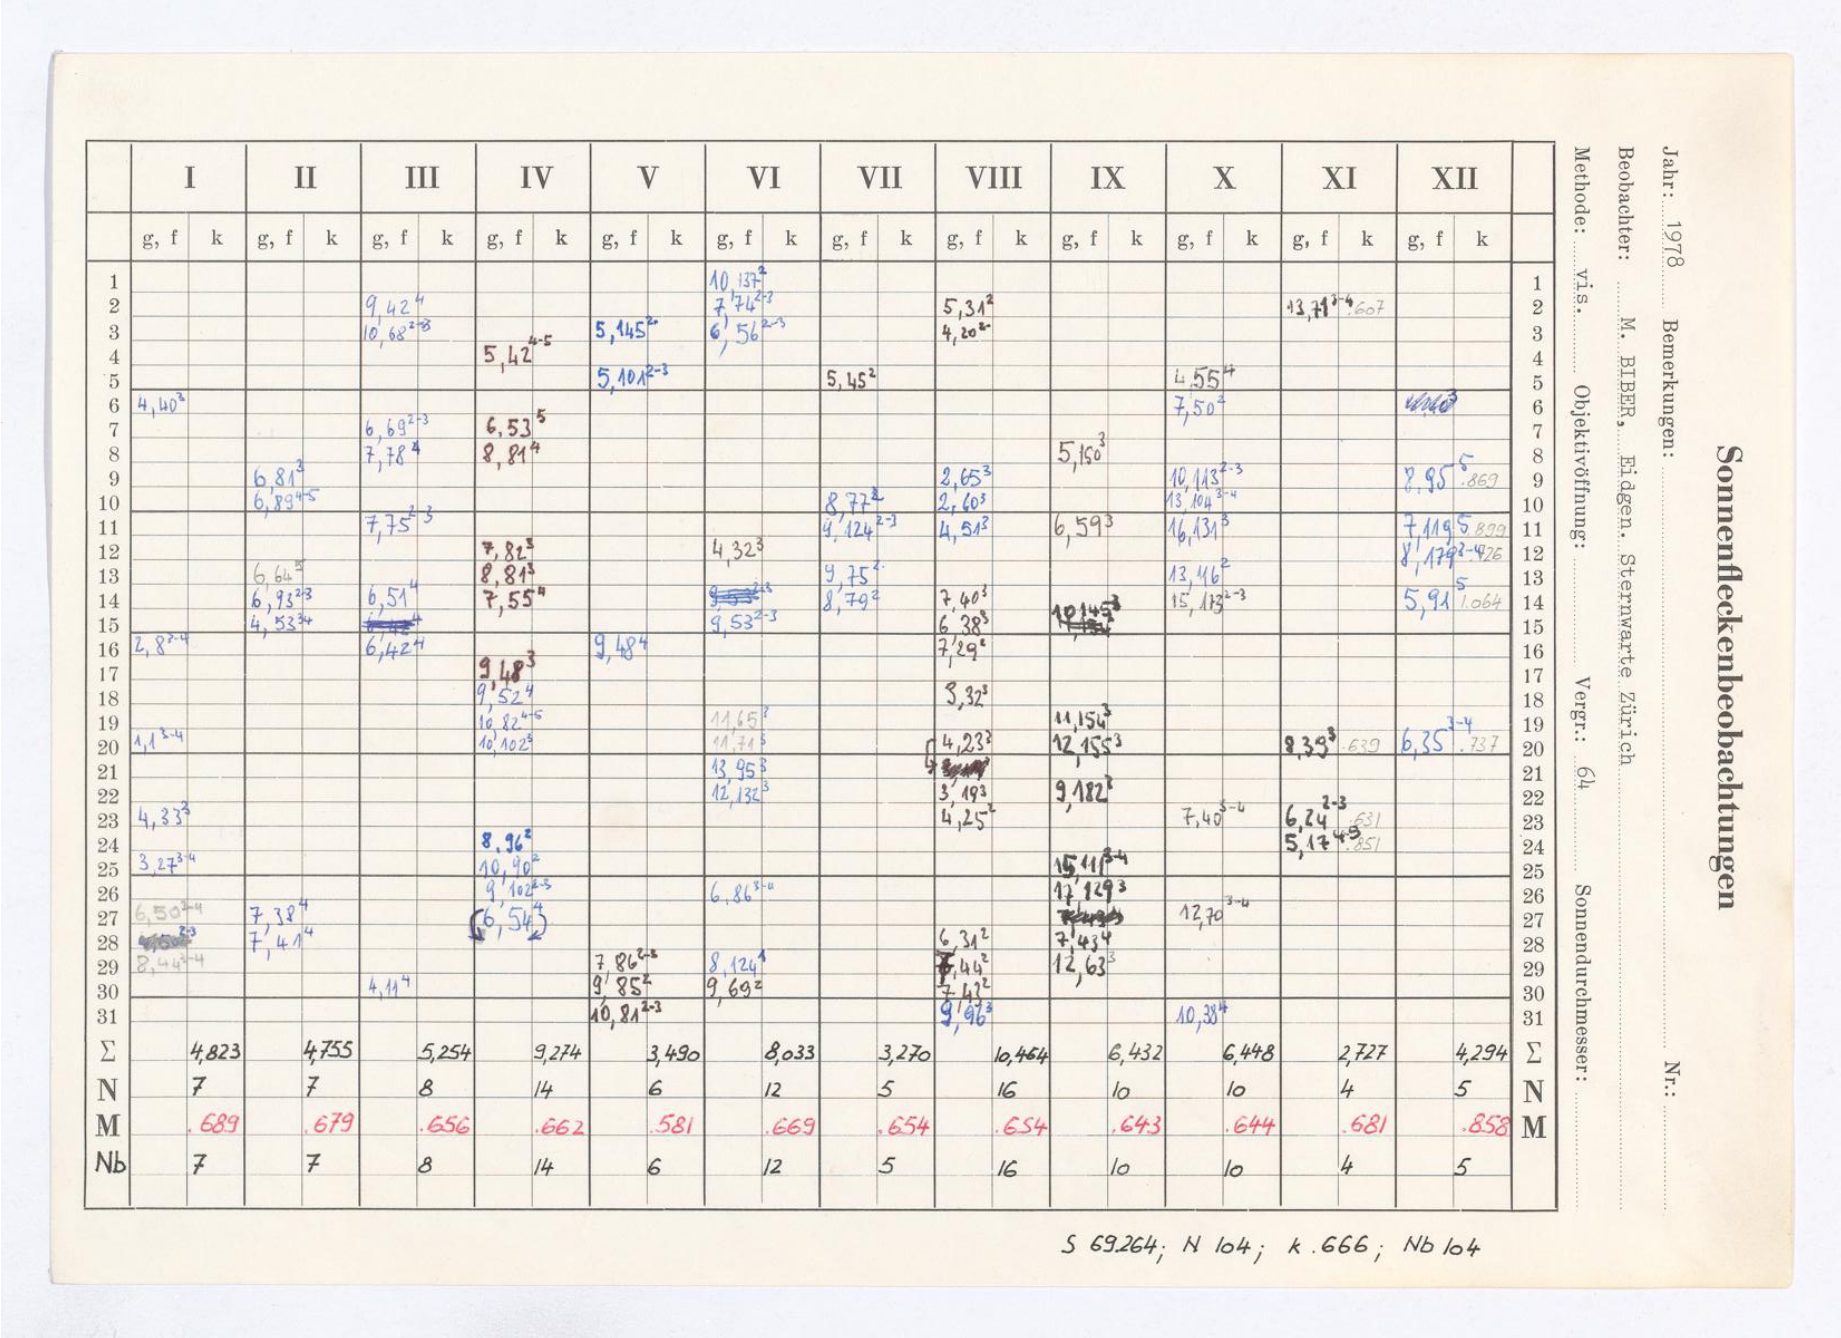 Sonnenfleckenbeobachtungen
Jahr: 1978 Bemerkungen: Nr.:
Beobachter: M. BIBER, Eidgen. Sternwarte Zürich
Methode: vis. Objektivöffnung: Vergr.: 64 Sonnendurchmesser:
I II III IV V VI VII VIII IX X XI XII
g, f k g, f k g, f k g, f k g, f k g, f k g, f k g, f k g, f k g, f k g, f k g, f k
1 10,137² 1
2 9,42⁴ 7,74²⁻³ 5,31² 13,71³⁻⁴ .607 2
3 10,68²⁻³ 5,145² 6,56²⁻³ 4,20² 3
4 5,42⁴⁻⁵ 4
5 5,101²⁻³ 5,45² 4,55⁴ 5
6 4,40³ 7,50² 6
7 6,69²⁻³ 6,53⁵ 7
8 7,78⁴ 8,81⁴ 5,150³ 8
9 6,81³ 2,65³ 10,113²⁻³ 8,95⁵ .869 9
10 6,89⁴⁻⁵ 8,77² 2,60³ 13,104³⁻⁴ 10
11 7,75²⁻³ 9,124²⁻³ 4,51³ 6,59³ 16,131³ 7,119⁵ .899 11
12 7,82³ 4,32³ 8,179³⁻⁴ 12
13 6,64⁵ 8,81³ 9,75² 13,116² 13
14 6,93²⁻³ 6,51⁴ 7,55⁴ 8,79² 7,40³ 10,145³ 15,173²⁻³ 5,91⁵ 1.064 14
15 4,53³⁻⁴ 9,53²⁻³ 6,38³ 15
16 2,8³⁻⁴ 6,42⁴ 9,48⁴ 7,29² 16
17 9,48³ 17
18 9,52⁴ 3,32³ 18
19 10,82⁴⁻⁵ 11,65³ 11,154³ 19
20 1,1³⁻⁴ 10,102³ 11,71³ 4,23³ 12,155³ 8,39³ .639 6,35³⁻⁴ .737 20
21 13,95³ 21
22 12,132³ 3,19³ 9,182³ 22
23 4,33³ 4,25² 7,40³⁻⁴ 6,24²⁻³ .631 23
24 8,96² 5,17⁴⁻⁵ .851 24
25 3,27³⁻⁴ 10,90² 15,111³⁻⁴ 25
26 9,102²⁻³ 6,86³⁻⁴ 17,129³ 26
27 6,50³⁻⁴ 7,38⁴ (6,54⁴) 12,70³⁻⁴ 27
28 7,41⁴ 6,31² 7,43⁴ 28
29 8,44³⁻⁴ 7,86²⁻³ 8,124¹ 44² 12,63³ 29
30 4,11⁴ 9,85² 9,69² 7,43² 30
31 10,81²⁻³ 9,96³ 10,38⁴ 31
Σ 4,823 4,755 5,254 9,274 3,490 8,033 3,270 10,464 6,432 6,448 2,727 4,294 Σ
N 7 7 8 14 6 12 5 16 10 10 4 5 N
M .689 .679 .656 .662 .581 .669 .654 .654 .643 .644 .681 .858 M
Nb 7 7 8 14 6 12 5 16 10 10 4 5
S 69.264; N 104; k .666; Nb 104